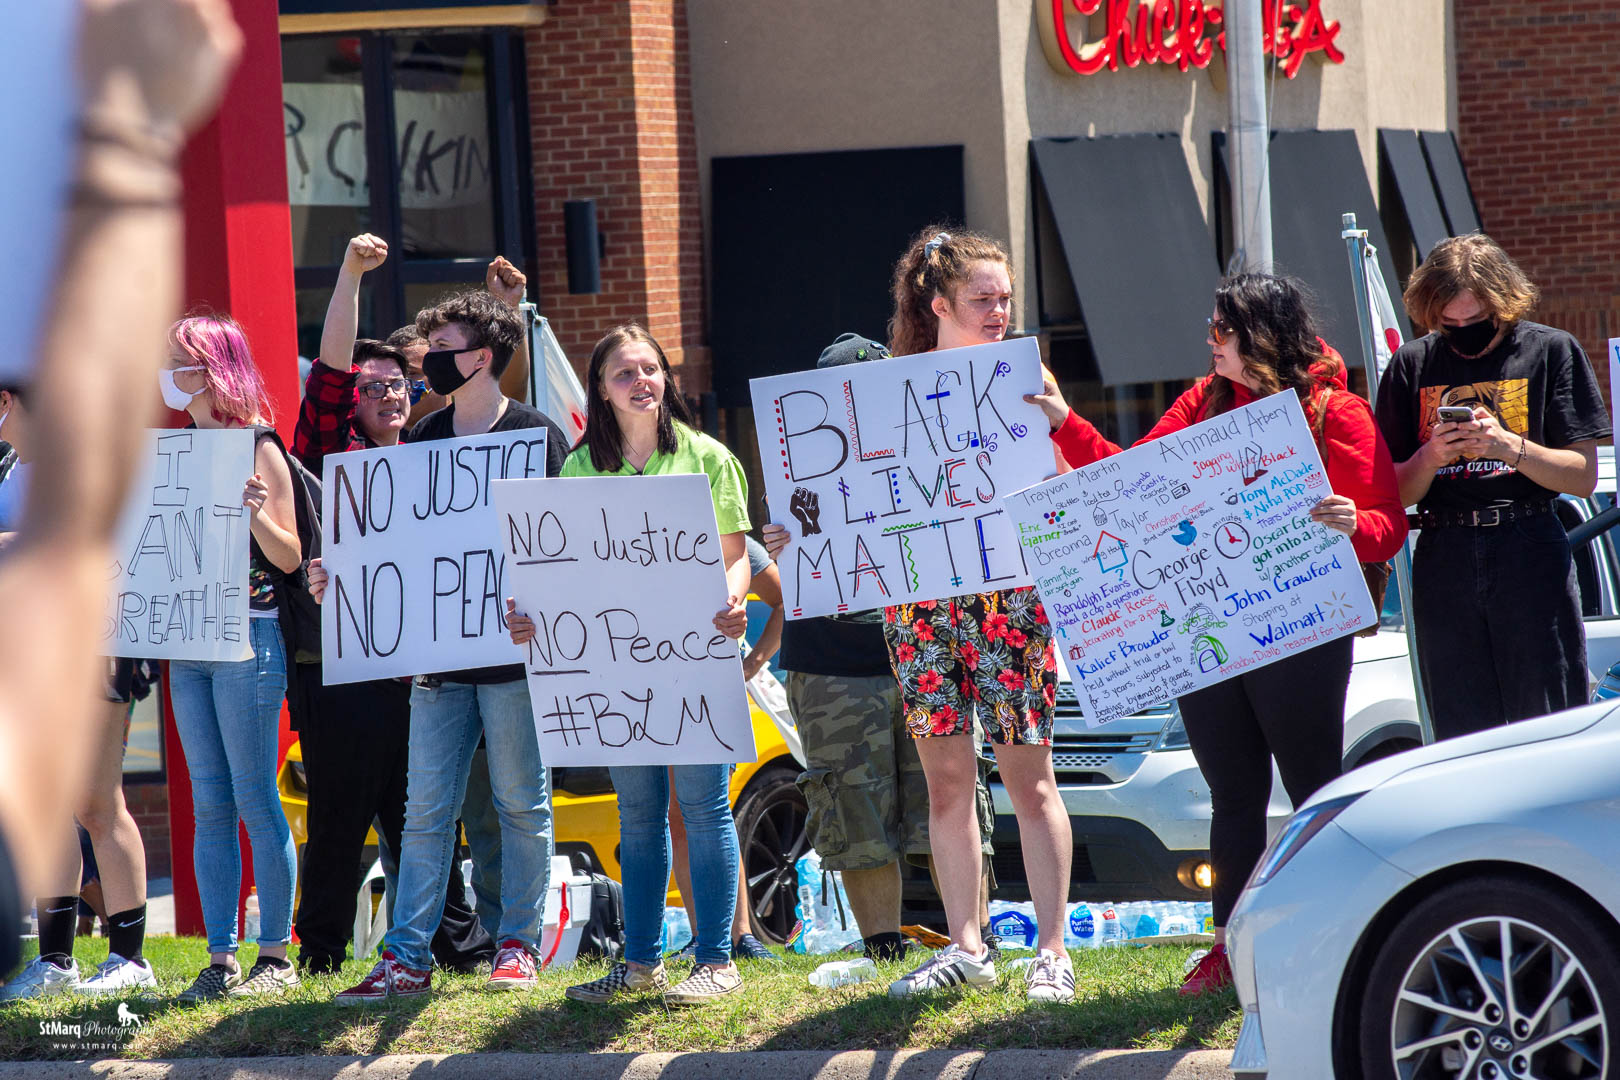 Chick-fil-A
R CHIKIN
I
CAN'T
BREATHE
NO JUSTICE
NO PEAC
NO Justice
NO Peace
#BLM
BLACK
LIVES
MATTE
Trayvon Martin
Skittles & Iced tea
Ahmaud Arbery
jogging while Black
Eric Garner
"I can't breathe"
Philando Castile
reached for ID
Taylor
Breonna
wrong House
Christian Cooper
Bird watching while Black
Tony McDade
& Nina POP
trans while Black
Tamir Rice
air soft gun
George
Floyd
minutes
Oscar Gra
got into a fight
w/ another civilian
Randolph Evans
asked a cop a question
Claude Reese
decorating for a party
John Crawford
Shopping at
Walmart
Kalief Browder
held without trial or bail
for 3 years, subjected to
beatings by inmates & guards,
eventually committed suicide
Amadou Diallo reached for wallet
RUTO UZUMA
Purified
Water
StMarq Photography
www.stmarq.com